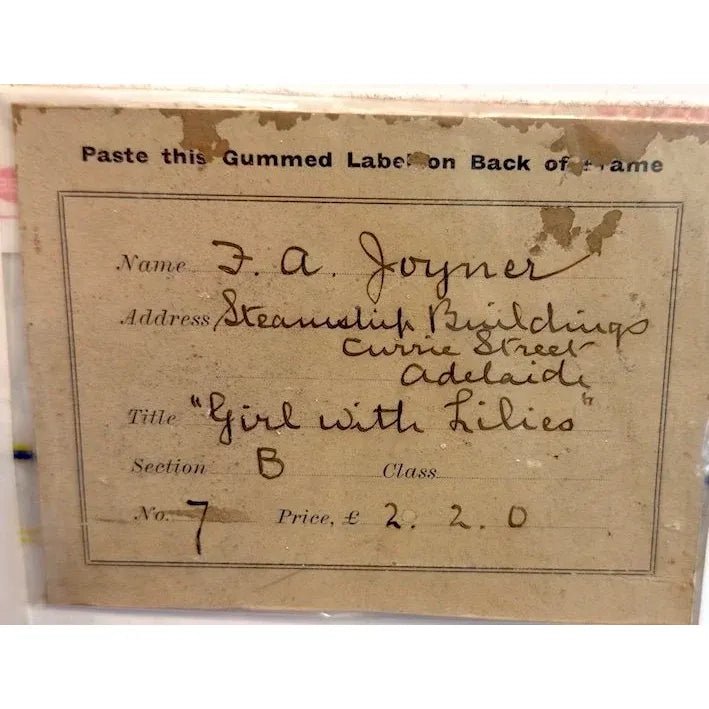 Paste this Gummed Label on Back of Frame
Name F. A. Joyner
Address Steamship Buildings
Currie Street
Adelaide
Title "Girl with Lilies"
Section B Class
No. 7 Price, £ 2. 2. 0